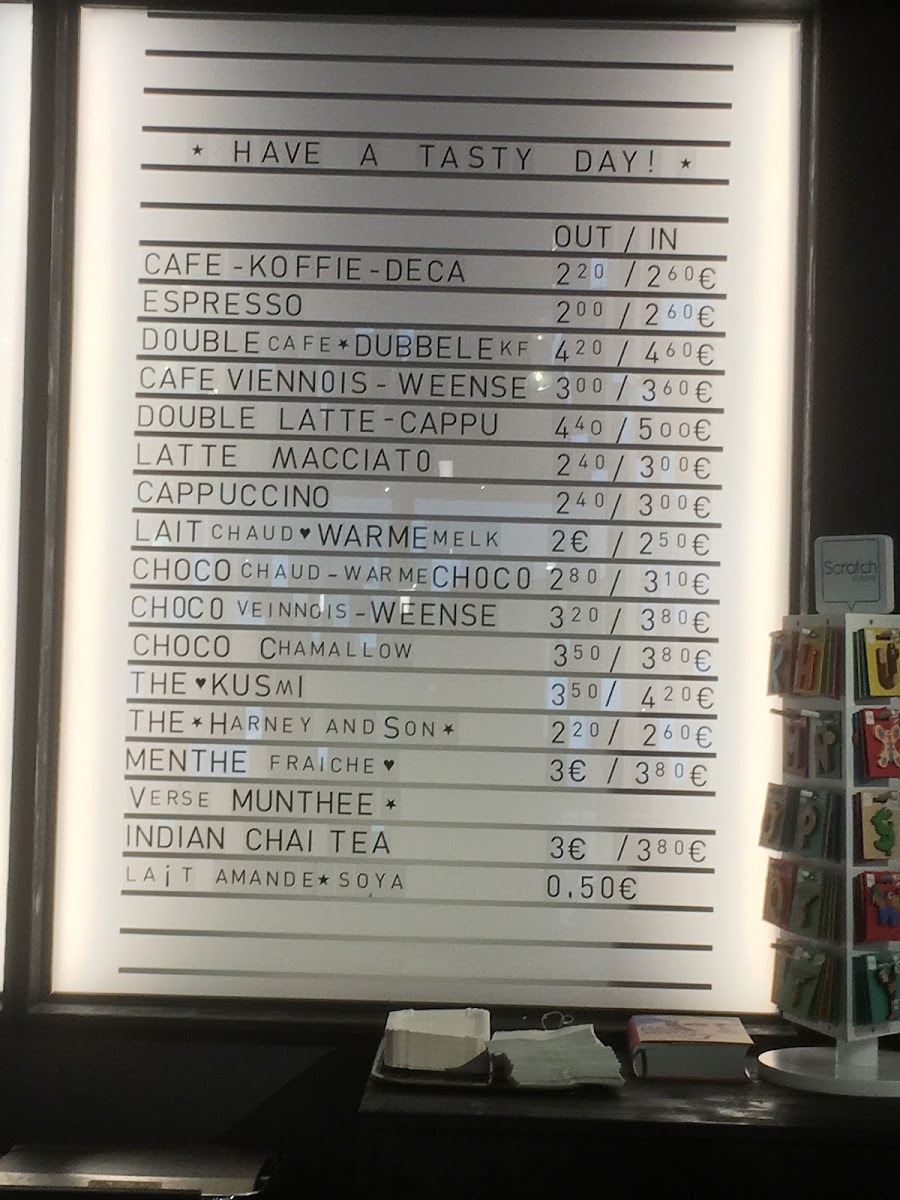 ★ HAVE A TASTY DAY! ★
OUT / IN
CAFE-KOFFIE-DECA 2²⁰ / 2⁶⁰€
ESPRESSO 2⁰⁰ / 2⁶⁰€
DOUBLE CAFE★DUBBELE KF 4²⁰ / 4⁶⁰€
CAFE VIENNOIS - WEENSE 3⁰⁰ / 3⁶⁰€
DOUBLE LATTE-CAPPU 4⁴⁰ / 5⁰⁰€
LATTE MACCIATO 2⁴⁰ / 3⁰⁰€
CAPPUCCINO 2⁴⁰ / 3⁰⁰€
LAIT CHAUD♥WARME MELK 2€ / 2⁵⁰€
CHOCO CHAUD-WARME CHOCO 2⁸⁰ / 3¹⁰€
CHOCO VEINNOIS-WEENSE 3²⁰ / 3⁸⁰€
CHOCO CHAMALLOW 3⁵⁰ / 3⁸⁰€
THE ♥KUSMI 3⁵⁰ / 4²⁰€
THE★HARNEY AND SON★ 2²⁰ / 2⁶⁰€
MENTHE FRAICHE♥ 3€ / 3⁸⁰€
VERSE MUNTHEE ★
INDIAN CHAI TEA 3€ / 3⁸⁰€
LAiT AMANDE★SOYA 0.50€
Scratch
EUROPE